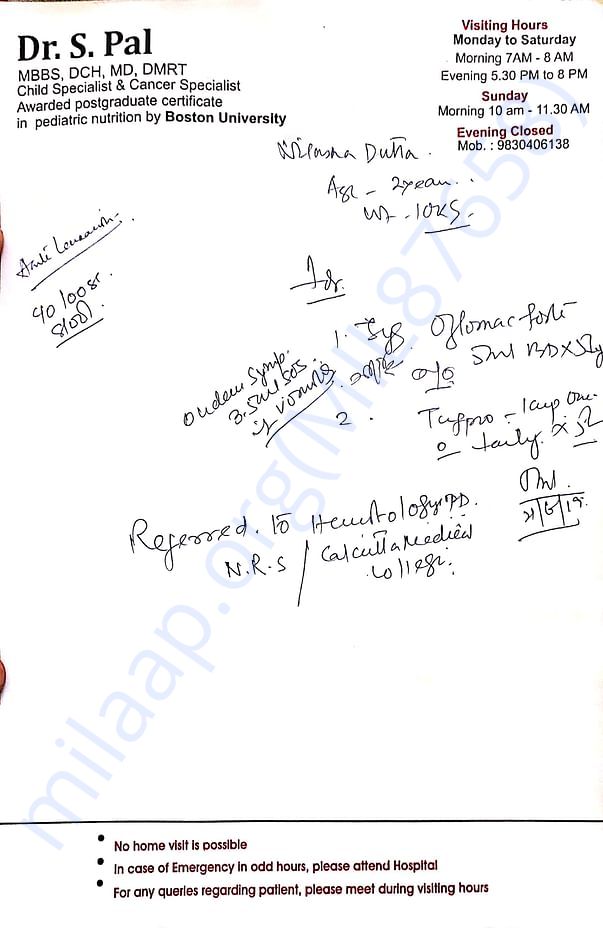 Dr. S. Pal
MBBS, DCH, MD, DMRT
Child Specialist & Cancer Specialist
Awarded postgraduate certificate
in pediatric nutrition by Boston University
Visiting Hours
Monday to Saturday
Morning 7AM - 8 AM
Evening 5.30 PM to 8 PM
Sunday
Morning 10 am - 11.30 AM
Evening Closed
Mob. : 9830406138
Dutta
Age - 2 year
Wt - 10KG
Stool
1. Syp Oflomac forte
5ml BD X 5
Ondem Syrup
3.5ml SOS
if vomiting
2.
daily X
Referred. To Hematology OPD.
N.R.S / Calcutta Medical
College
milaap.org(MILE8765
No home visit is possible
In case of Emergency in odd hours, please attend Hospital
For any queries regarding patient, please meet during visiting hours